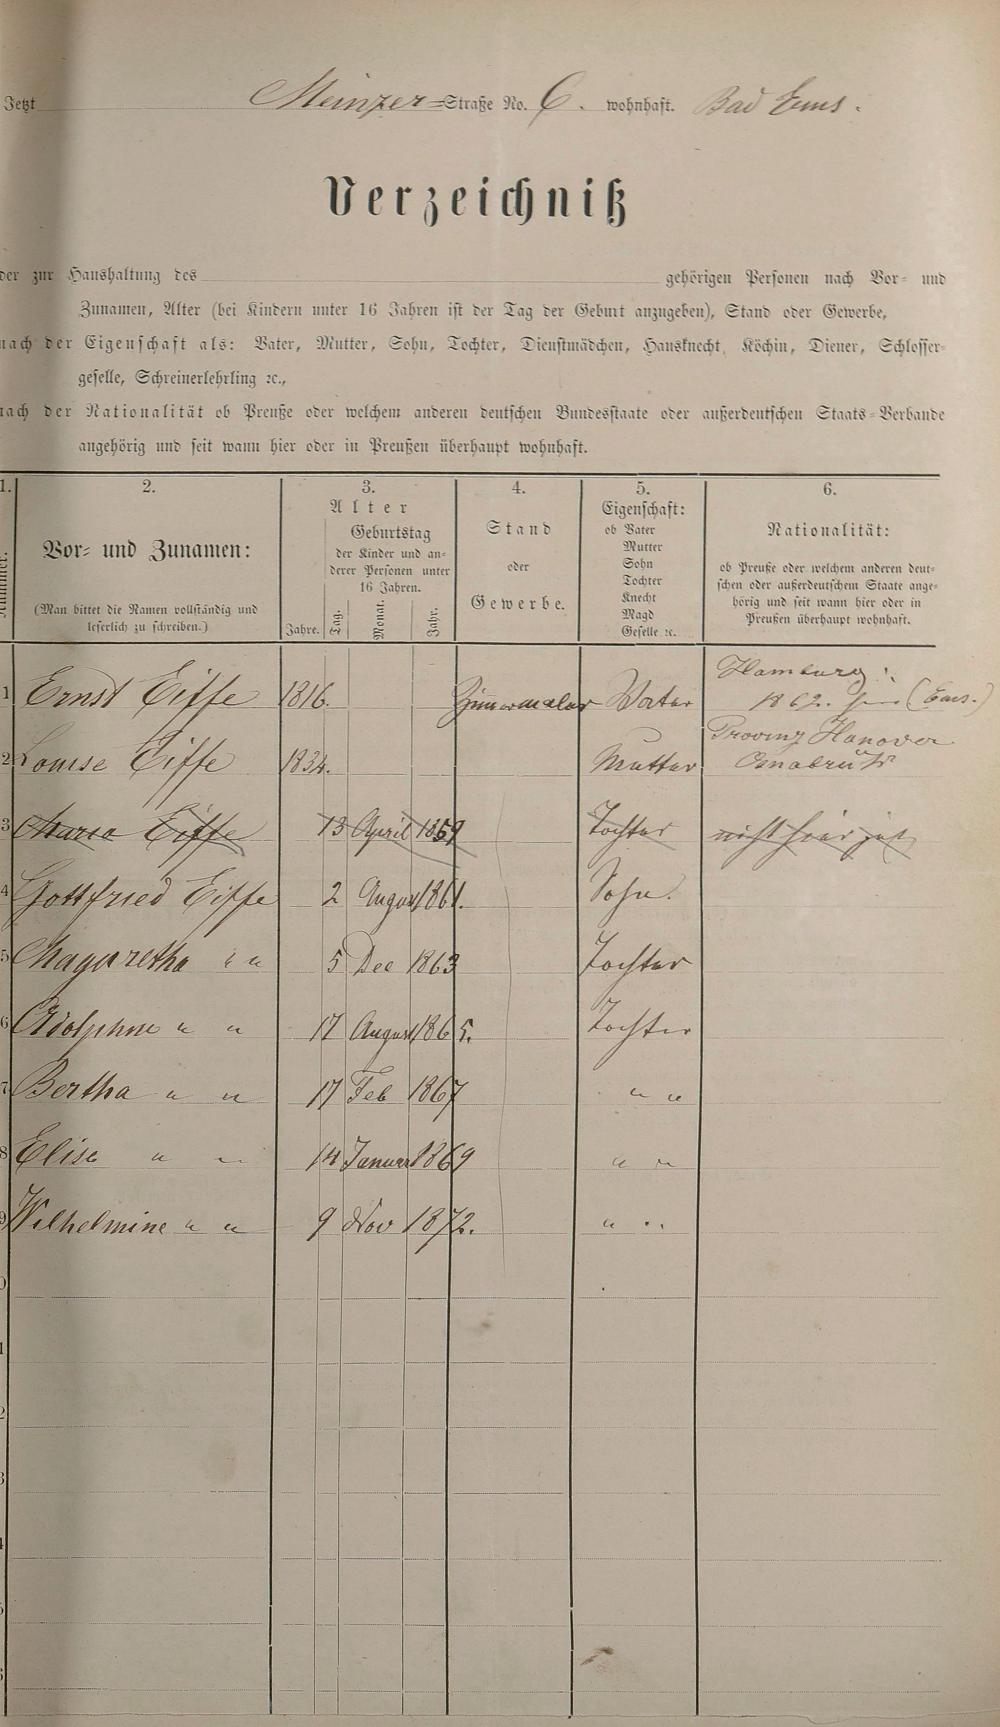 Jetzt Meinzer=Straße No. 6. wohnhaft. Bad Ems.
Verzeichniß
der zur Haushaltung des gehörigen Personen nach Vor- und
Zunamen, Alter (bei Kindern unter 16 Jahren ist der Tag der Geburt anzugeben), Stand oder Gewerbe,
nach der Eigenschaft als: Vater, Mutter, Sohn, Tochter, Dienstmädchen, Hausknecht, Köchin, Diener, Schlosser-
geselle, Schreinerlehrling ꝛc.,
nach der Nationalität ob Preuße oder welchem anderen deutschen Bundesstaate oder außerdeutschen Staats-Verbande
angehörig und seit wann hier oder in Preußen überhaupt wohnhaft.
1. 2. 3. 4. 5. 6.
Nummer.
Vor- und Zunamen:
(Man bittet die Namen vollständig und
leserlich zu schreiben.)
Alter
Geburtstag
der Kinder und an-
derer Personen unter
16 Jahren.
Jahre. Tag. Monat. Jahr.
Stand
oder
Gewerbe.
Eigenschaft:
ob Vater
Mutter
Sohn
Tochter
Knecht
Magd
Geselle ꝛc.
Nationalität:
ob Preuße oder welchem anderen deut-
schen oder außerdeutschem Staate ange-
hörig und seit wann hier oder in
Preußen überhaupt wohnhaft.
Hamburg
1 Ernst Eiffe 1816. Zimmermaler Vater 1862. (Ems.)
Provinz Hanover
2 Louise Eiffe 1834. Mutter Osnabrük
3 Maria Eiffe 13 April 1859 Tochter nicht hier
4 Gottfried Eiffe 2 August 1861. Sohn.
5 Magaretha " " 5 Dec 1863 Tochter
6 Adolphne " " 17 August 1865. Tochter
7 Bertha " " 17 Feb 1867 " "
8 Elise " " 14 Januar 1869 " "
9 Wilhelmine " " 9 Nov 1872. " "
0
1
2
3
4
5
6